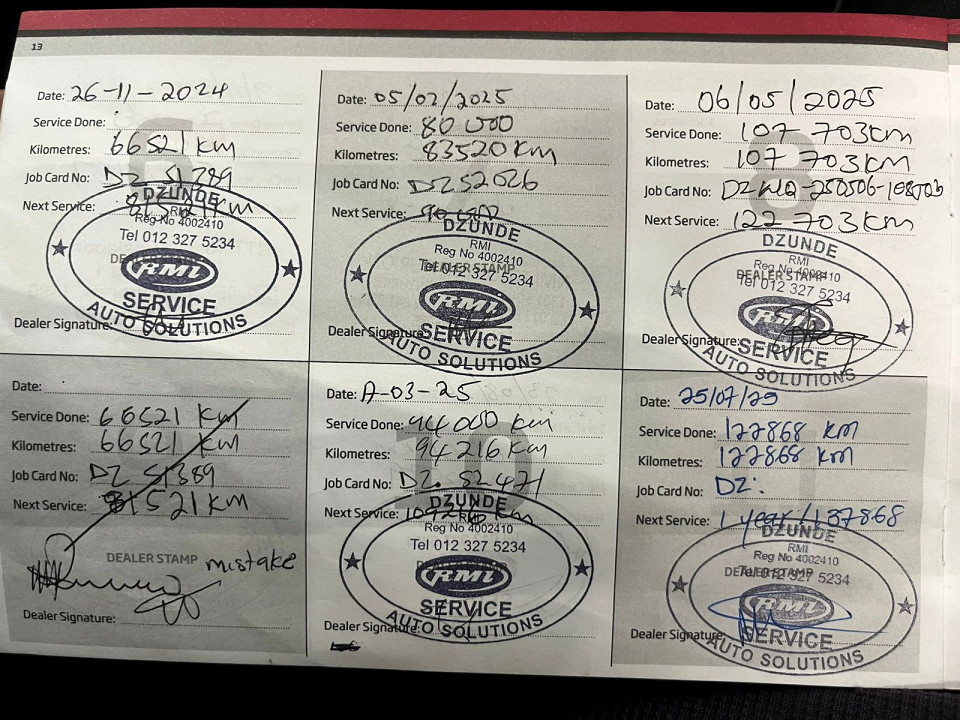 13
Date: 26-11-2024
Service Done:
Kilometres: 66521 km
Job Card No: DZ 51389
Next Service: 81521 km
DZUNDE
RMI
Reg No 4002410
Tel 012 327 5234
RMI
SERVICE
AUTO SOLUTIONS
Dealer Signature:
Date: 05/02/2025
Service Done: 80 000
Kilometres: 83520 km
Job Card No: DZ 52026
Next Service:
DZUNDE
RMI
Reg No 4002410
DEALER STAMP
Tel 012 327 5234
RMI
Dealer Signature:
SERVICE
AUTO SOLUTIONS
8
Date: 06/05/2025
Service Done: 107 703km
Kilometres: 107 703km
Job Card No:
Next Service: 122 703km
DZUNDE
RMI
Reg No 4002410
DEALER STAMP
Tel 012 327 5234
RMI
Dealer Signature:
SERVICE
AUTO SOLUTIONS
Date:
Service Done: 66521 km
Kilometres: 66521 km
Job Card No: DZ 51389
Next Service: 81521 km
DEALER STAMP mistake
Dealer Signature:
10
Date: -03-25
Service Done: 94000 km
Kilometres: 94216 km
Job Card No: DZ. 52471
Next Service: 109216 km
DZUNDE
RMI
Reg No 4002410
Tel 012 327 5234
RMI
SERVICE
Dealer Signature:
AUTO SOLUTIONS
Date: 25/07/25
Service Done: 122868 km
Kilometres: 122868 km
Job Card No: DZ:
Next Service: 1 year / 137868
DZUNDE
RMI
Reg No 4002410
DEALER STAMP
Tel 012 327 5234
RMI
Dealer Signature:
SERVICE
AUTO SOLUTIONS